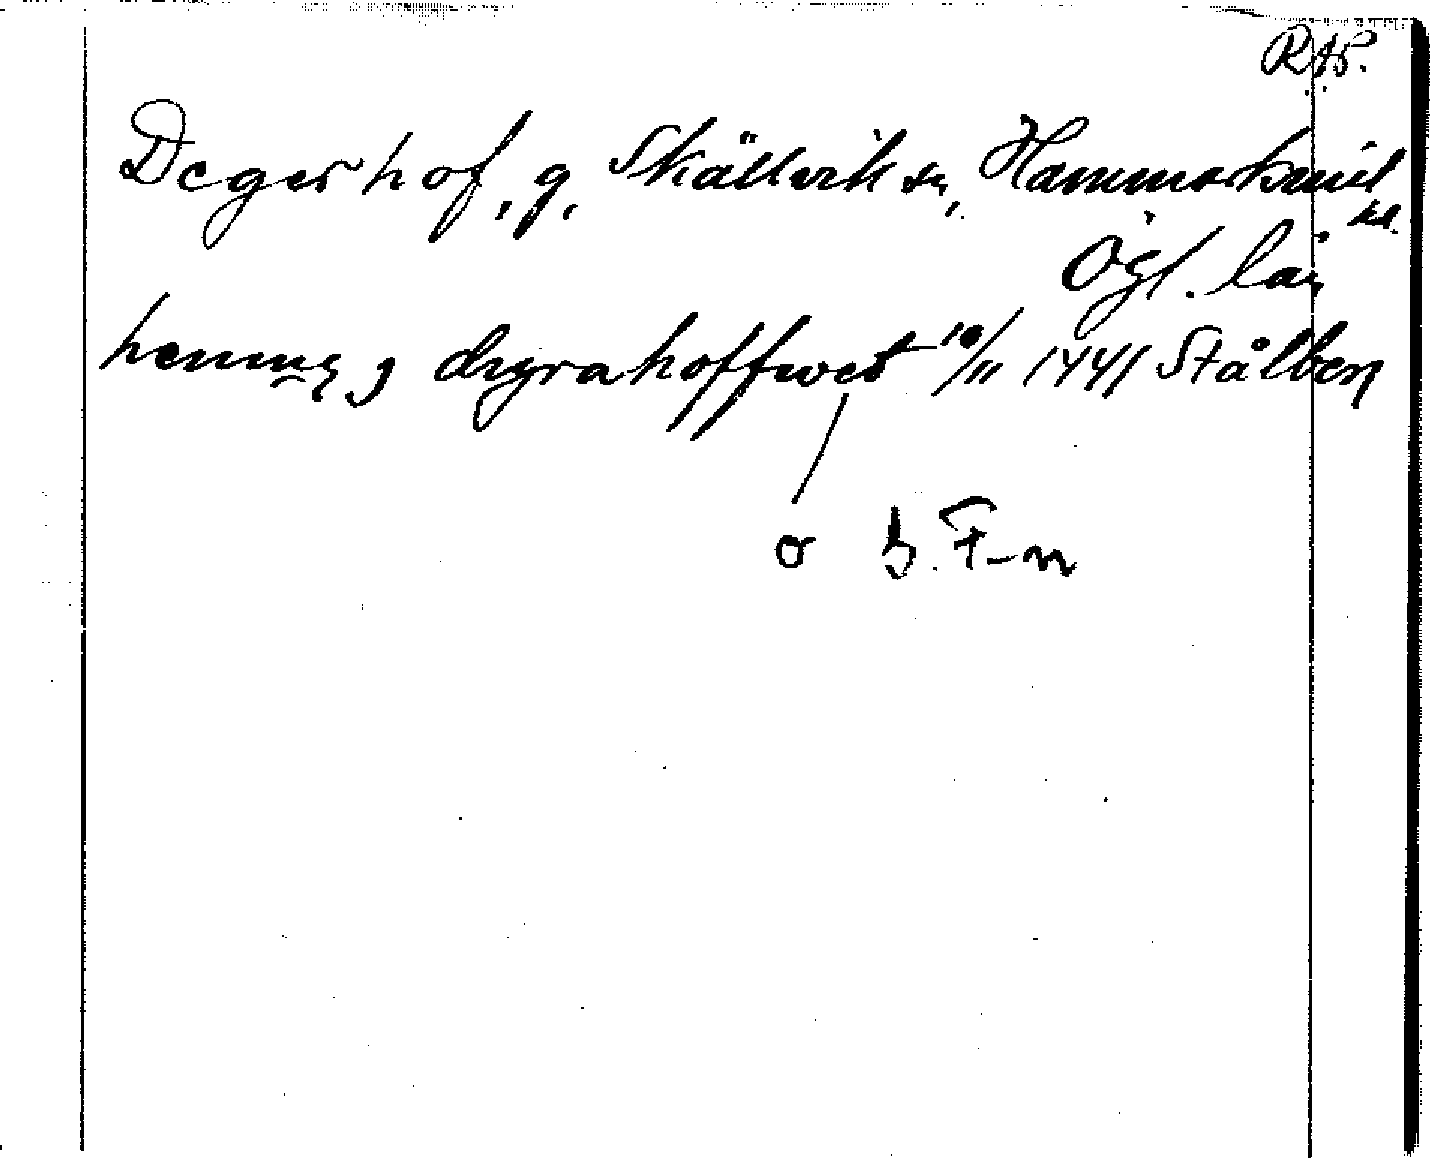 RAP.
Degerhof, g, Skällvik sn, Hammarkind
hd.
Ögl. län
hemmg j dhyrahoffwet 10/11 1441 Stålberg
o b. F-n